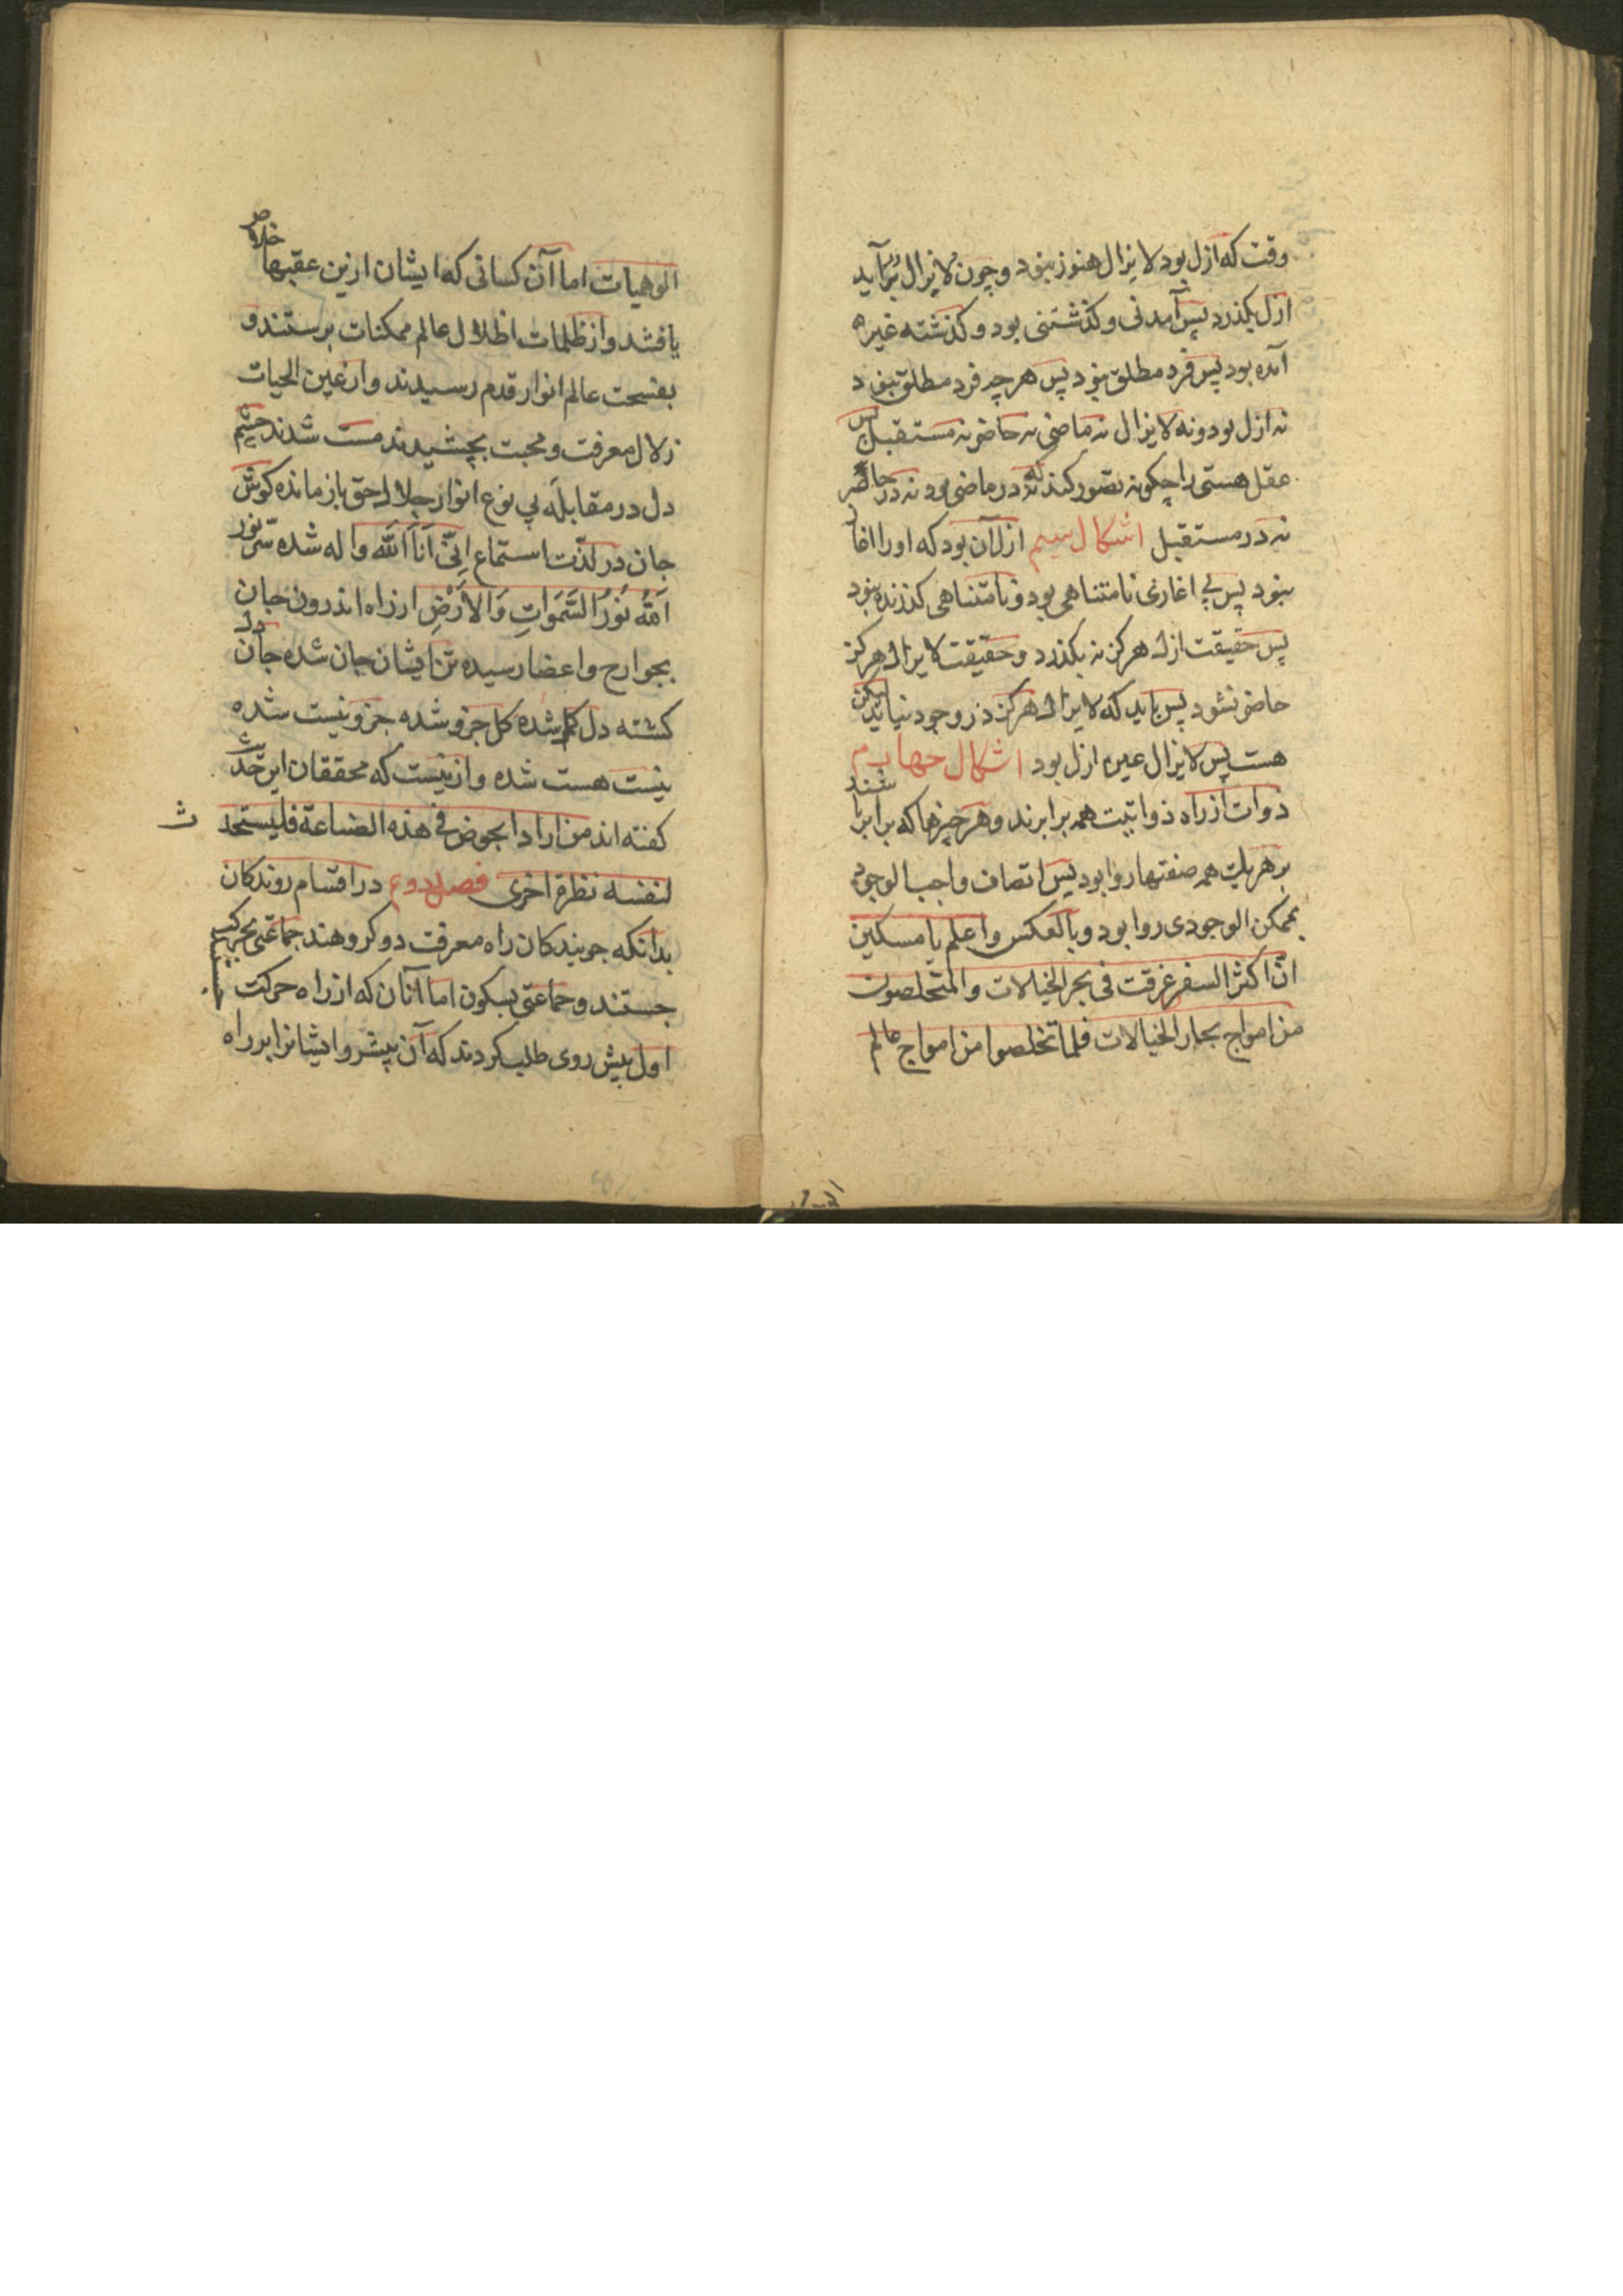 وقت که ازل بود لا یزال هنوز نبود و چون لا یزال برآید
ازل بکذرد پس آمدنی و کذشتنی بود و کذشته غیره
آمده بود پس فرد مطلق نبود پس هر چه فرد مطلق نبود
نه ازل بود و نه لا یزال نه ماضی نه حاضر نه مستقبل پس
عقل هستی را چکونه تصور کند که نه در ماضی بود نه در حاضر
نه در مستقبل اشکال سیم ازل آن بود که او را اغاز
نبود پس بی اغازی نامتناهی بود و نامتناهی کذرنده نبود
پس حقیقت ازل هرکز نه بکذرد و حقیقت لا یزال هرکز
حاضر نشود پس باید که لا یزال هرکز در وجود نیاید لیکن
هست پس لا یزال عین ازل بود اشکال چهارم
ذوات از راه ذواتیت همه برابرند و هر چیزها که برابر باشند
بر هر یک همه صفتها روا بود پس اتصاف واجب الوجود
بممکن الوجودی روا بود و بالعکس واعلم یا مسکین
انّ اکثر السفر غرقت فی بحر الخیالات والمتخلصون
من امواج بحار الخیالات فلما تخلصوا من امواج عالم
الوهیات اما آن کسانی که ایشان ازین عقبها خلاص
یافتند و از ظلمات اظلال عالم ممکنات برستند و
بفسحت عالم انوار قدم رسیدند و از عین الحیات
زلال معرفت و محبت بچشیدند مست شدند چشم
دل در مقابله بی نوع انوار جلال حق باز مانده کوش
جان در لذّت استماع اِنّی اَنَا اَللّٰه واله شده سرّ نور
اَللّٰهُ نُورُ السَّمَوَاتِ وَالاَرْضِ از راه اندرون جان
بجوارح و اعضا رسیده تن ایشان جان شده جان دل
کشته دل کل شده کل جزو شده جزو نیست شده
نیست هست شده و از نیست که محققان این حدیث
کفته اند من اراد الخوض فی هذه الصناعة فلیستحدث
لنفسه نظرة اخری فصل دوم در اقسام روندکان
بدانکه جویندکان راه معرفت دو کروهند جماعتی بحرکت
جستند و جماعتی بسکون اما آنان که از راه حرکت
اول پیش روی طلب کردند که آن پیشرو ایشانرا بر راه